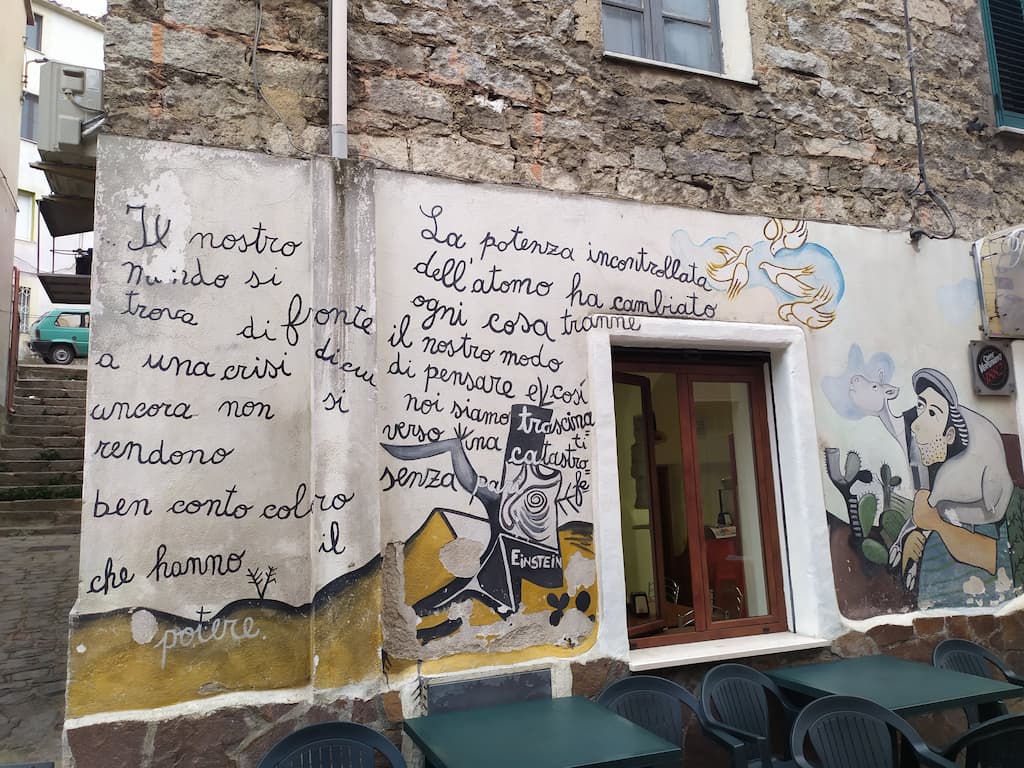 Il nostro
mondo si
trova di fronte
a una crisi di cui
ancora non si
rendono
ben conto coloro
che hanno il
potere.
La potenza incontrollata
dell'atomo ha cambiato
ogni cosa tranne
il nostro modo
di pensare e così
noi siamo trascina
verso una ti
catastro=
senza fe
EINSTEIN
Caffè
Vergnano
1882